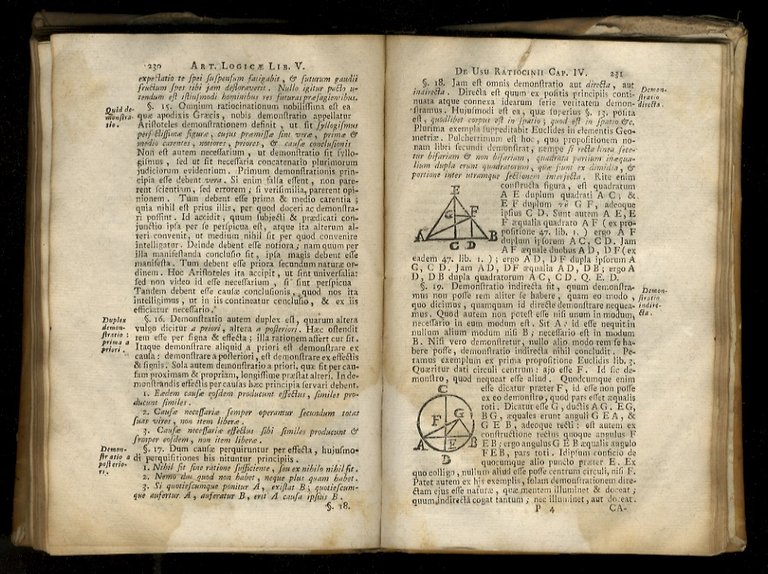 230 ART. LOGICÆ LIB. V.
expectatio te spei suspensum fatigabit, & futurum gaudii
fructum spes tibi jam defloraverit. Nullo igitur pacto u-
tendum est istiusmodi hominibus res futuras præsagientibus.
Quid de-
monstra-
tio.
§. 15. Omnium ratiocinationum nobilissima est ea
quæ apodixis Græcis, nobis demonstratio appellatur
Aristoteles demonstrationem definit, ut sit syllogismus
perfectissimæ figuræ, cujus præmissæ sint veræ, primæ &
medio carentes, notiores, priores, & causæ conclusionis
Non est autem necessarium, ut demonstratio sit syllo-
gismus, sed ut sit necessaria concatenatio plurimorum
judiciorum evidentium. Primum demonstrationis prin-
cipia esse debent vera. Si enim falsa essent, non pare-
rent scientiam, sed errorem; si verisimilia, parerent opi-
nionem. Tum debent esse prima & medio carentia;
quia nihil est prius illis, per quod doceri ac demonstra-
ri possint. Id accidit, quum subjecti & prædicati con-
junctio ipsa per se perspicua est, atque ita alterum al-
teri convenit, ut medium nihil sit per quod convenire
intelligatur. Deinde debent esse notiora; nam quum per
illa manifestanda conclusio sit, ipsa magis debent esse
manifesta. Tum debent esse priora secundum naturæ or-
dinem. Hoc Aristoteles ita accipit, ut sint universalia:
sed non video id esse necessarium, si sint perspicua
Tandem debent esse causæ conclusionis, quod nos ita
intelligimus, ut in iis contineatur conclusio, & ex iis
efficiatur necessario.
Duplex
demon-
stratio:
prima a
priori.
§. 16. Demonstratio autem duplex est, quarum altera
vulgo dicitur a priori, altera a posteriori. Hæc ostendit
rem esse per signa & effecta; illa rationem affert cur sit.
Itaque demonstrare aliquid a priori est demonstrare ex
causa: demonstrare a posteriori, est demonstrare ex effectis
& signis. Sola autem demonstratio a priori, quæ fit per cau-
sam proximam & propriam, longissime præstat alteri. In de-
monstrandis effectis per causas hæc principia servari debent.
1. Eædem causæ eosdem producunt effectus, similes pro-
ducunt similes.
2. Causæ necessariæ semper operantur secundum totas
suas vires, non item liberæ.
3. Causæ necessariæ effectus sibi similes producunt &
semper eosdem, non item liberæ.
Demon-
stratio a
posterio-
ri.
§. 17. Dum causæ perquiruntur per effecta, hujusmo-
di perquisitiones his nituntur principiis.
1. Nihil fit sine ratione sufficiente, seu ex nihilo nihil fit.
2. Nemo dat quod non habet, neque plus quam habet.
3. Si quotiescumque ponitur A, existat B; quotiescum-
que aufertur A, auferatur B, erit A causa ipsius B.
§. 18.
DE USU RATIOCINII CAP. IV. 231
§. 18. Jam est omnis demonstratio aut directa, aut
indirecta. Directa est quum ex positis principiis conti-
nuata atque connexa idearum serie veritatem demon-
stramus. Hujusmodi est ea, quæ superius §. 13. posita
est, quodlibet corpus est in spatio; quod est in spatio &c.
Demon-
stratio
directa.
Plurima exempla suppeditabit Euclides in elementis Geo-
metriæ. Pulcherrimum est hoc, quo propositionem no-
nam libri secundi demonstrat; nempe si recta linea sece-
tur bifariam & non bifariam, quadrata partium inæqua-
lium dupla erunt quadratorum, quæ fiunt ex dimidia, &
portione inter utramque sectionem interjecta. Rite enim
constructa figura, est quadratum
A E duplum quadrati A C; &
E F duplum τȣ G F, adeoque
ipsius C D. Sunt autem A E, E
F æqualia quadrato A F (ex pro-
positione 47. lib. 1.) ergo A F
duplum ipsorum AC, CD. Jam
AF æquale duobus AD, DF (ex
E
G
F
A
C D
B
eadem 47. lib. 1.); ergo AD, DF dupla ipsorum A
C, C D. Jam AD, DF æqualia AD, DB; ergo A
D, DB dupla quadratorum A C, C D. Q. E. D.
Demon-
stratio
indire-
cta.
§. 19. Demonstratio indirecta fit, quum demonstra-
mus non posse rem aliter se habere, quam eo modo,
quo dicimus, quamquam id directe demonstrare nequea-
mus. Quod autem non potest esse nisi unum in modum,
necessario in eum modum est. Sit A: id esse nequit in
nullum alium modum nisi B; necessario est in modum
B. Nisi vero demonstretur, nullo alio modo rem se ha-
bere posse, demonstratio indirecta nihil concludit. Pe-
tamus exemplum ex prima propositione Euclidis lib. 3.
Quæritur dati circuli centrum: ajo esse F. Id sic de-
monstro, quod nequeat esse aliud. Quodcumque enim
esse dicatur præter F, id esse non posse
ex eo demonstro, quod pars esset æqualis
toti. Dicatur esse G, ductis AG. EG,
BG, æquales erunt anguli GEA, &
G E B, adeoque recti: est autem ex
constructione rectus quoque angulus F
EB; ergo angulus GEB æqualis angulo
FEB, pars toti. Idipsum conficio de
quocumque alio puncto præter E. Ex
C
F
G
A
E
B
D
quo colligo, nullum aliud esse posse centrum circuli, nisi F.
Patet autem ex his exemplis, solam demonstrationem dire-
ctam ejus esse naturæ, quæ mentem illuminet & doceat;
quum indirecta cogat tantum; nec illuminet, aut doceat.
P 4 CA-